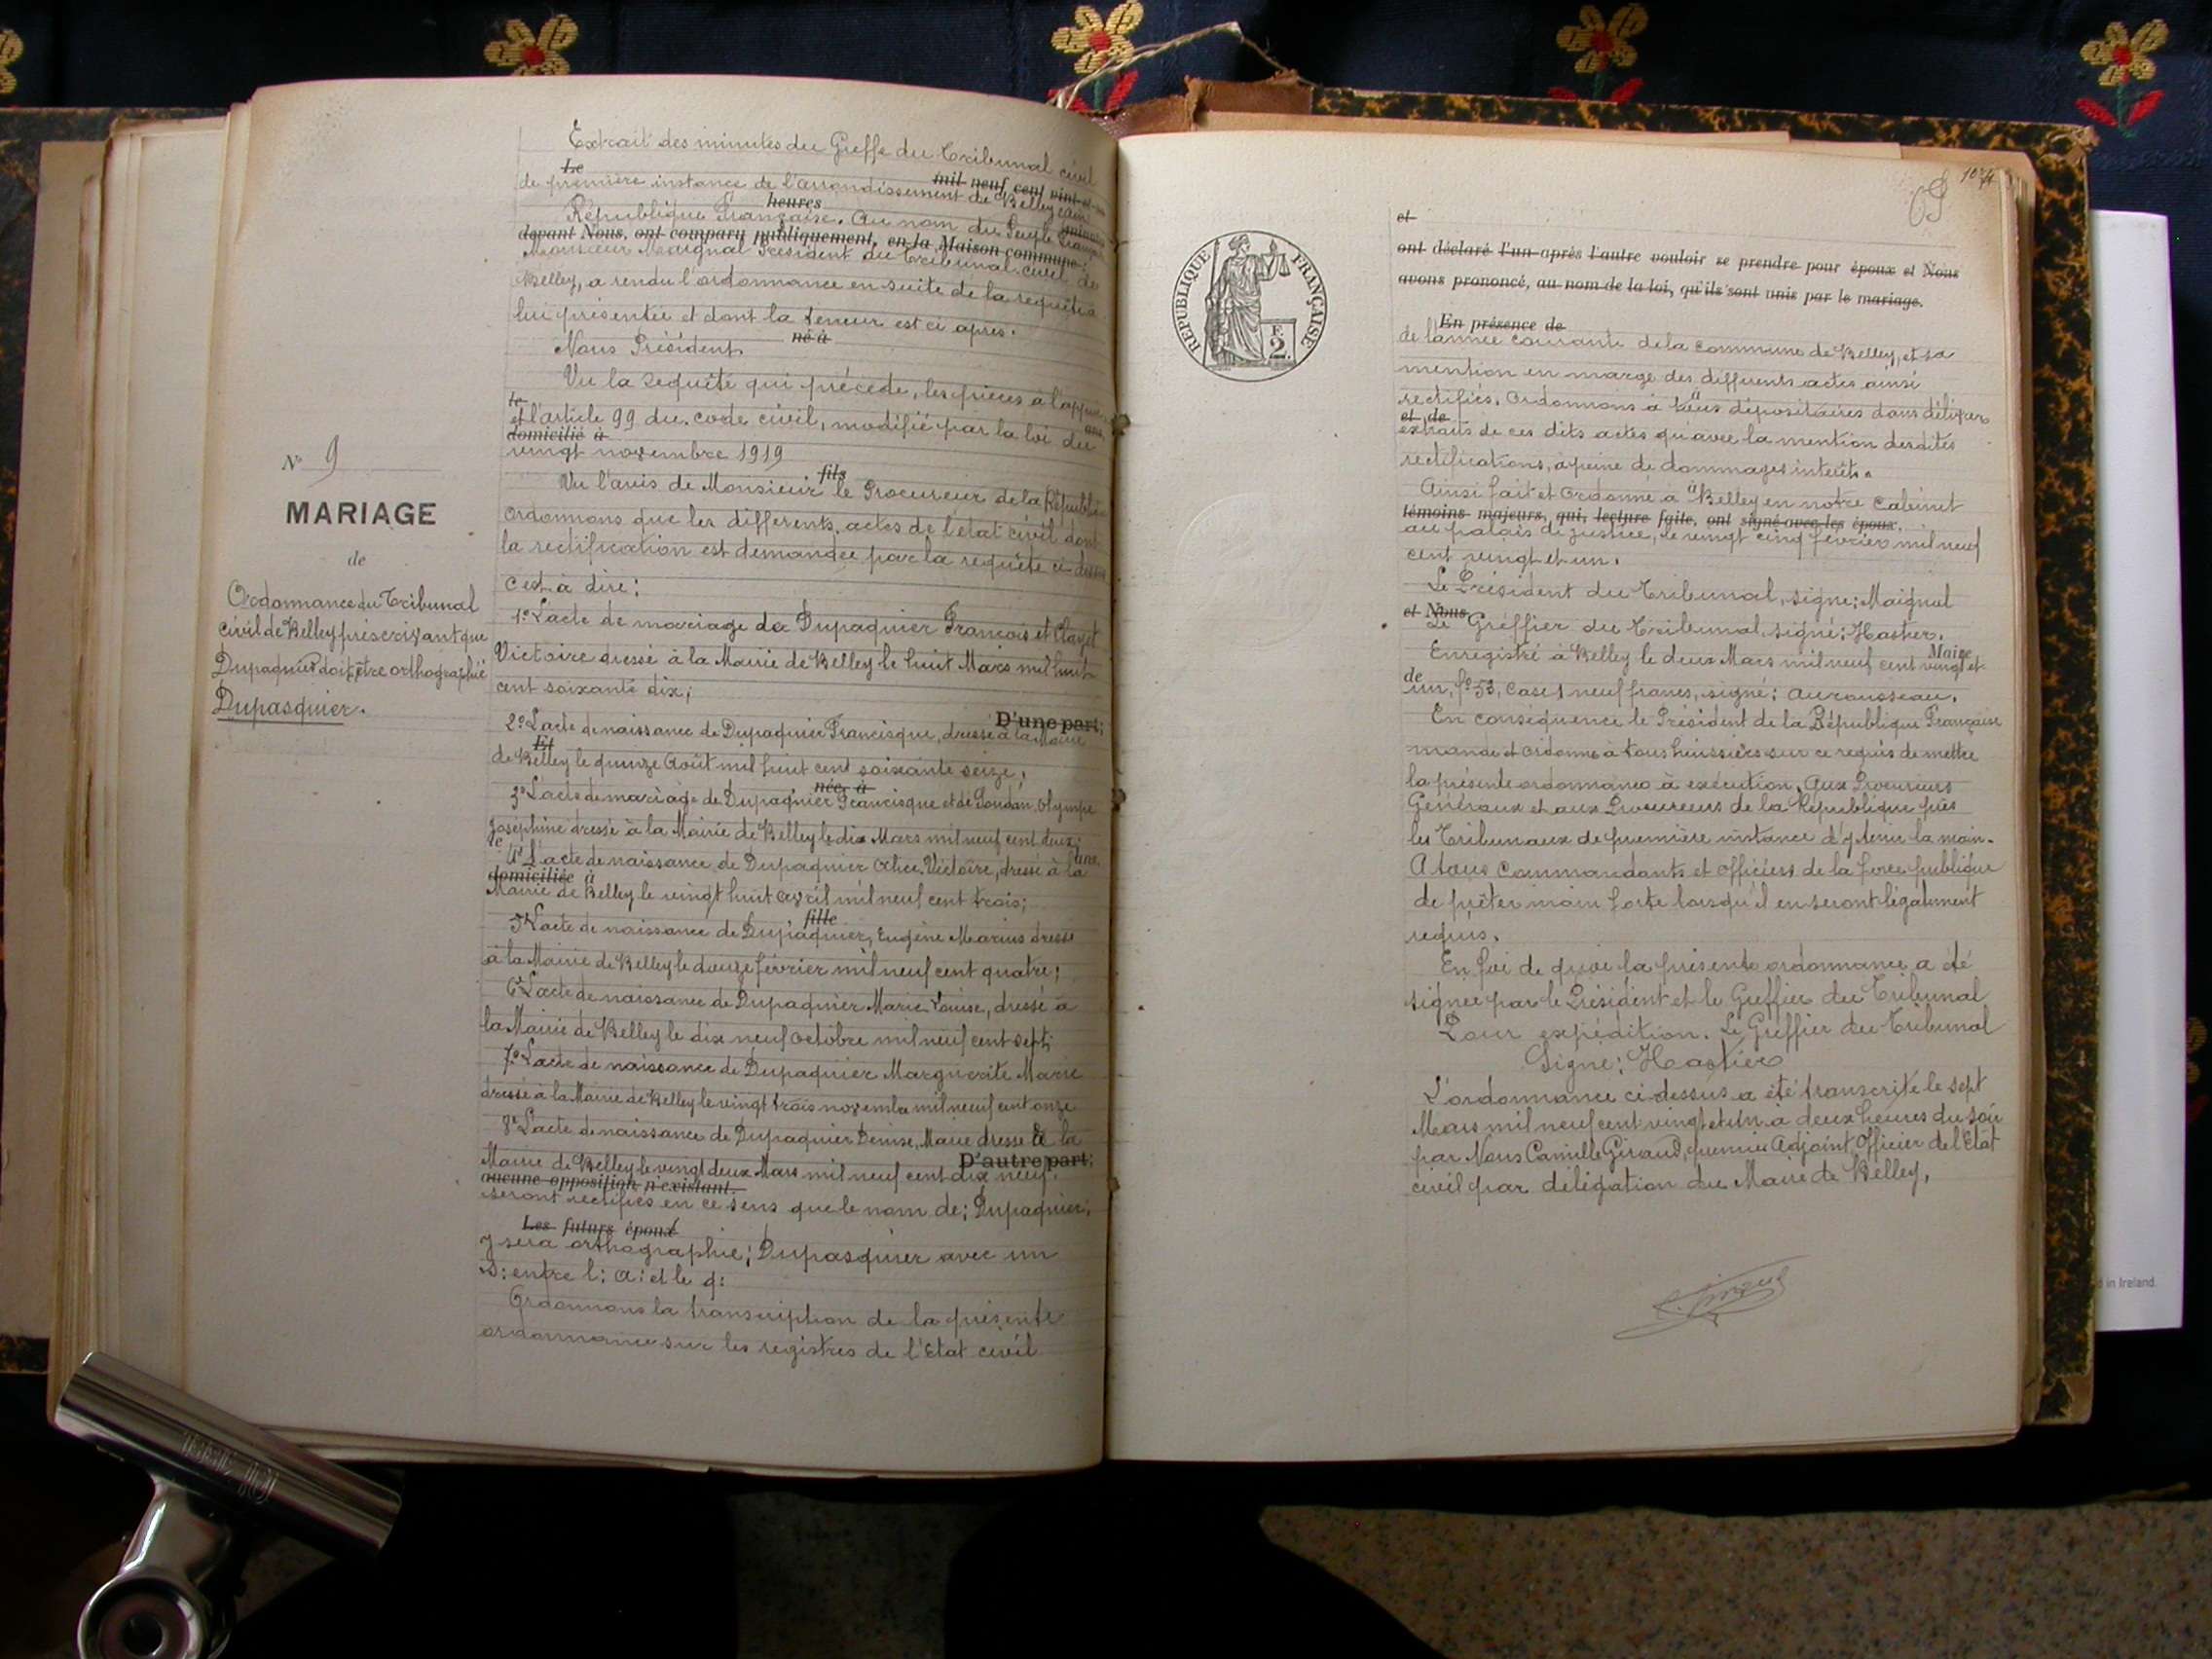 N° 9
MARIAGE
de
Ordonnance du Tribunal
civil de Belley prescrivant que
Dupaquier doit être orthographié
Dupasquier.
Extrait des minutes du Greffe du Tribunal civil
Le mil neuf cent vingt-et-un
de première instance de l'arrondissement de Belley
heures
République Française. Au nom du Peuple Français
devant Nous, ont comparu publiquement, en la Maison commune:
Monsieur Maignal Président du Tribunal civil de
Belley, a rendu l'ordonnance en suite de la requête à
lui présentée et dont la teneur est ci après.
né à
Nous Président
Vu la requête qui précède, les pièces à l'appui
le
et l'article 99 du code civil, modifié par la loi du
domicilié à
vingt novembre 1919
fils
Vu l'avis de Monsieur le Procureur de la République
ordonnons que les différents actes de l'état civil dont
la rectification est demandée par la requête ci dessus
c'est à dire:
1° L'acte de mariage de Dupaquier François et Clayet
Victoire dressé à la Mairie de Belley le huit Mars mil huit
cent soixante dix;
D'une part;
2° L'acte de naissance de Dupaquier Francisque, dressé à la Mairie
Et
de Belley le quinze Août mil huit cent soixante seize;
née à
3° L'acte de mariage de Dupaquier Francisque et de Goudan Olympe
Joséphine dressé à la Mairie de Belley le dix Mars mil neuf cent deux;
le
4° L'acte de naissance de Dupaquier Alice Victoire, dressé à la
domiciliée à
Mairie de Belley le vingt huit avril mil neuf cent trois;
fille
5° L'acte de naissance de Dupaquier, Eugène Marius dressé
à la Mairie de Belley le douze février mil neuf cent quatre;
6° L'acte de naissance de Dupaquier Marie Louise, dressé à
la Mairie de Belley le dix neuf Octobre mil neuf cent sept;
7° L'acte de naissance de Dupaquier Marguerite Marie
dressé à la Mairie de Belley le vingt trois novembre mil neuf cent onze
8° L'acte de naissance de Dupaquier Denise, Marie dressé à la
D'autre part;
Mairie de Belley le vingt deux Mars mil neuf cent dix neuf.
aucune opposition n'existant.
seront rectifiés en ce sens que le nom de; Dupaquier;
Les futurs époux
y sera orthographié; Dupasquier avec un
s: entre l: a: et le q:
Ordonnons la transcription de la présente
ordonnance sur les registres de l'Etat civil
RÉPUBLIQUE FRANÇAISE
F.
2
69
et
ont déclaré l'un après l'autre vouloir se prendre pour époux et Nous
avons prononcé, au nom de la loi, qu'ils sont unis par le mariage.
En présence de
de l'année courante de la commune de Belley, et sa
mention en marge des différents actes ainsi
rectifiés. Ordonnons à tous dépositaires dans délivrer
et de
extraits de ces dits actes qu'avec la mention desdites
rectifications, à peine de dommages intérêts.
Ainsi fait et ordonné à Belley en notre cabinet
témoins majeurs, qui, lecture faite, ont signé avec les époux.
au palais de justice, le vingt cinq février mil neuf
cent vingt et un.
Le Président du Tribunal, signé; Maignal
et Nous
Le Greffier du Tribunal signé; Hastier.
Maire
Enregistré à Belley le deux Mars mil neuf cent vingt et
de
un, f° 53, Case 1 neuf francs, signé; Aurousseau.
En conséquence le Président de la République Française
mande et ordonne à tous huissiers sur ce requis de mettre
la présente ordonnance à exécution. Aux Procureurs
Généraux et aux Procureurs de la République près
les Tribunaux de première instance d'y tenir la main.
A tous Commandants et officiers de la force publique
de prêter main forte lorsqu'il en seront légalement
requis.
En foi de quoi la présente ordonnance a été
signée par le Président et le Greffier du Tribunal
Pour expédition. Le Greffier du Tribunal
Signé; Hastier
L'ordonnance ci-dessus a été transcrite le sept
Mars mil neuf cent vingt et un à deux heures du soir
par Nous Camille Giraud, premier Adjoint Officier de l'Etat
civil par délégation du Maire de Belley,
C. Giraud
in Ireland.